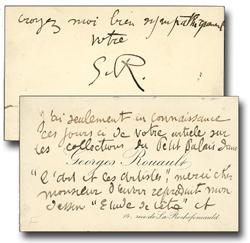 croyez moi bien sympathiquement
votre
G.R.
J'ai seulement eu connaissance
ces jours ci de votre article sur
les collections du Petit Palais dans
Georges Rouault
"l'art et les artistes" merci cher
monsieur d'avoir reproduit mon
dessin "Etude de tête" et
14, rue de La Rochefoucauld